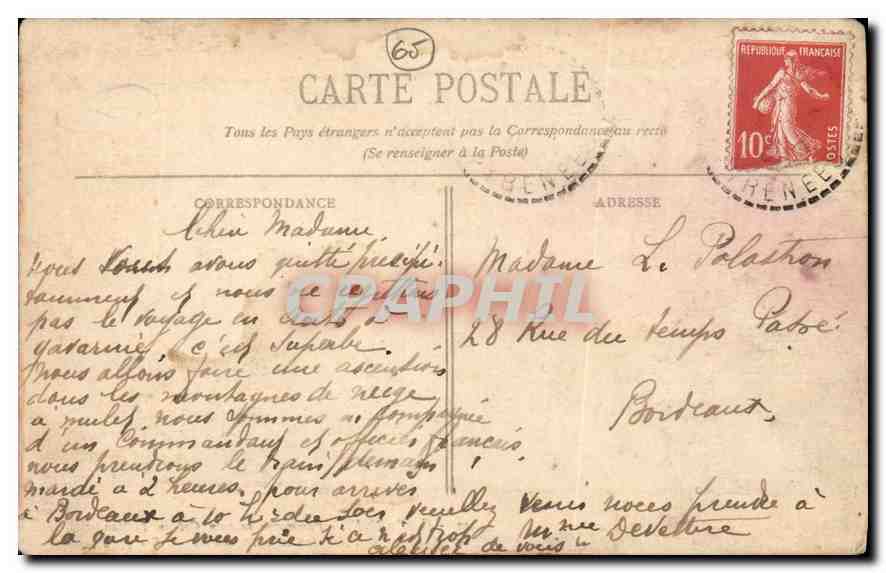 65
CARTE POSTALE
Tous les Pays étrangers n'acceptent pas la Correspondance au recto
(Se renseigner à la Poste)
REPUBLIQUE FRANÇAISE
10c POSTES
RENEE
RENEE
CORRESPONDANCE
ADRESSE
Madame
nous vous avons quitté précipi-
tamment et nous ne
pas le voyage en
gavarnie, c'est superbe.
nous allons faire une ascention
dans les montagnes de neige
à mulet nous sommes
d'un commandant et officiers francais
nous prendrons le train demain
mardi à 2 heures, pour arriver
à Bordeaux à 10 h veuillez venir nous prendre à
la gare
Mme Devetture
de vous
Madame L. Polastron
28 Rue du temps Passé
Bordeaux
CPAPHIL